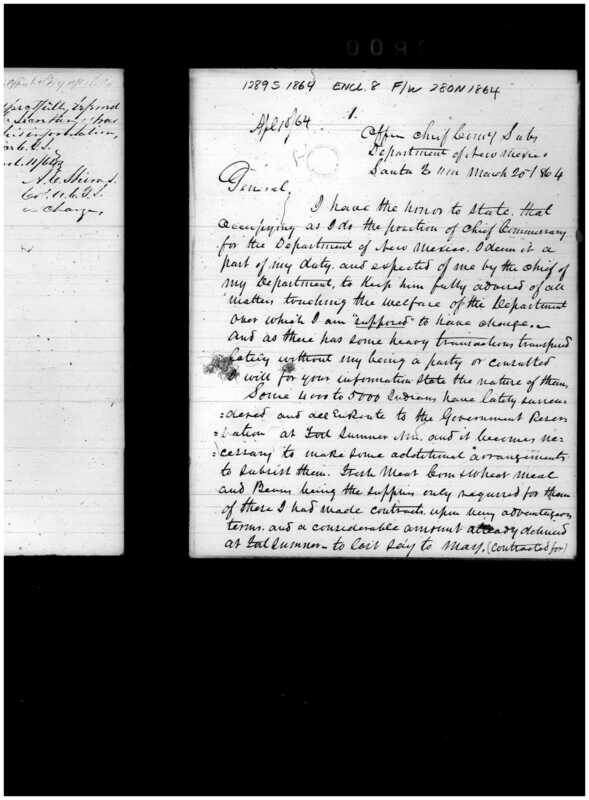 0090
1289 S 1864 ENCL. 8 F/W 280 N 1864
respond
this information,
A. E. Shiras
Col. A. C. G. S.
in Charge,
Apl 18/64 1.
Office Chief Com'y Subs
Department of New Mexico
Santa Fe NM March 20th 1864
General,
I have the honor to state, that
occupying as I do the position of Chief Commissary
for the Department of New Mexico, I deem it a
part of my duty, and expected of me by the chief of
my Department, to keep him fully advised of all
matters touching the welfare of the Department
over which I am "supposed" to have charge.
and as there has some heavy transactions transpired
lately without my being a party or consulted
I will for your information state the nature of them,
Some 4000 to 5000 Indians have lately surren-
:dered and are EnRoute to the Government Reser
:vation at Fort Sumner NM, and it becomes ne-
:cessary to make some additional arrangements
to subsist them. Fresh Meat Corn & Wheat meal
and Beans being the supplies only required for them
of these I had made contracts upon very advantageous
terms, and a considerable amount already delivered
at Fort Sumner - to last say to May. (contracted for)